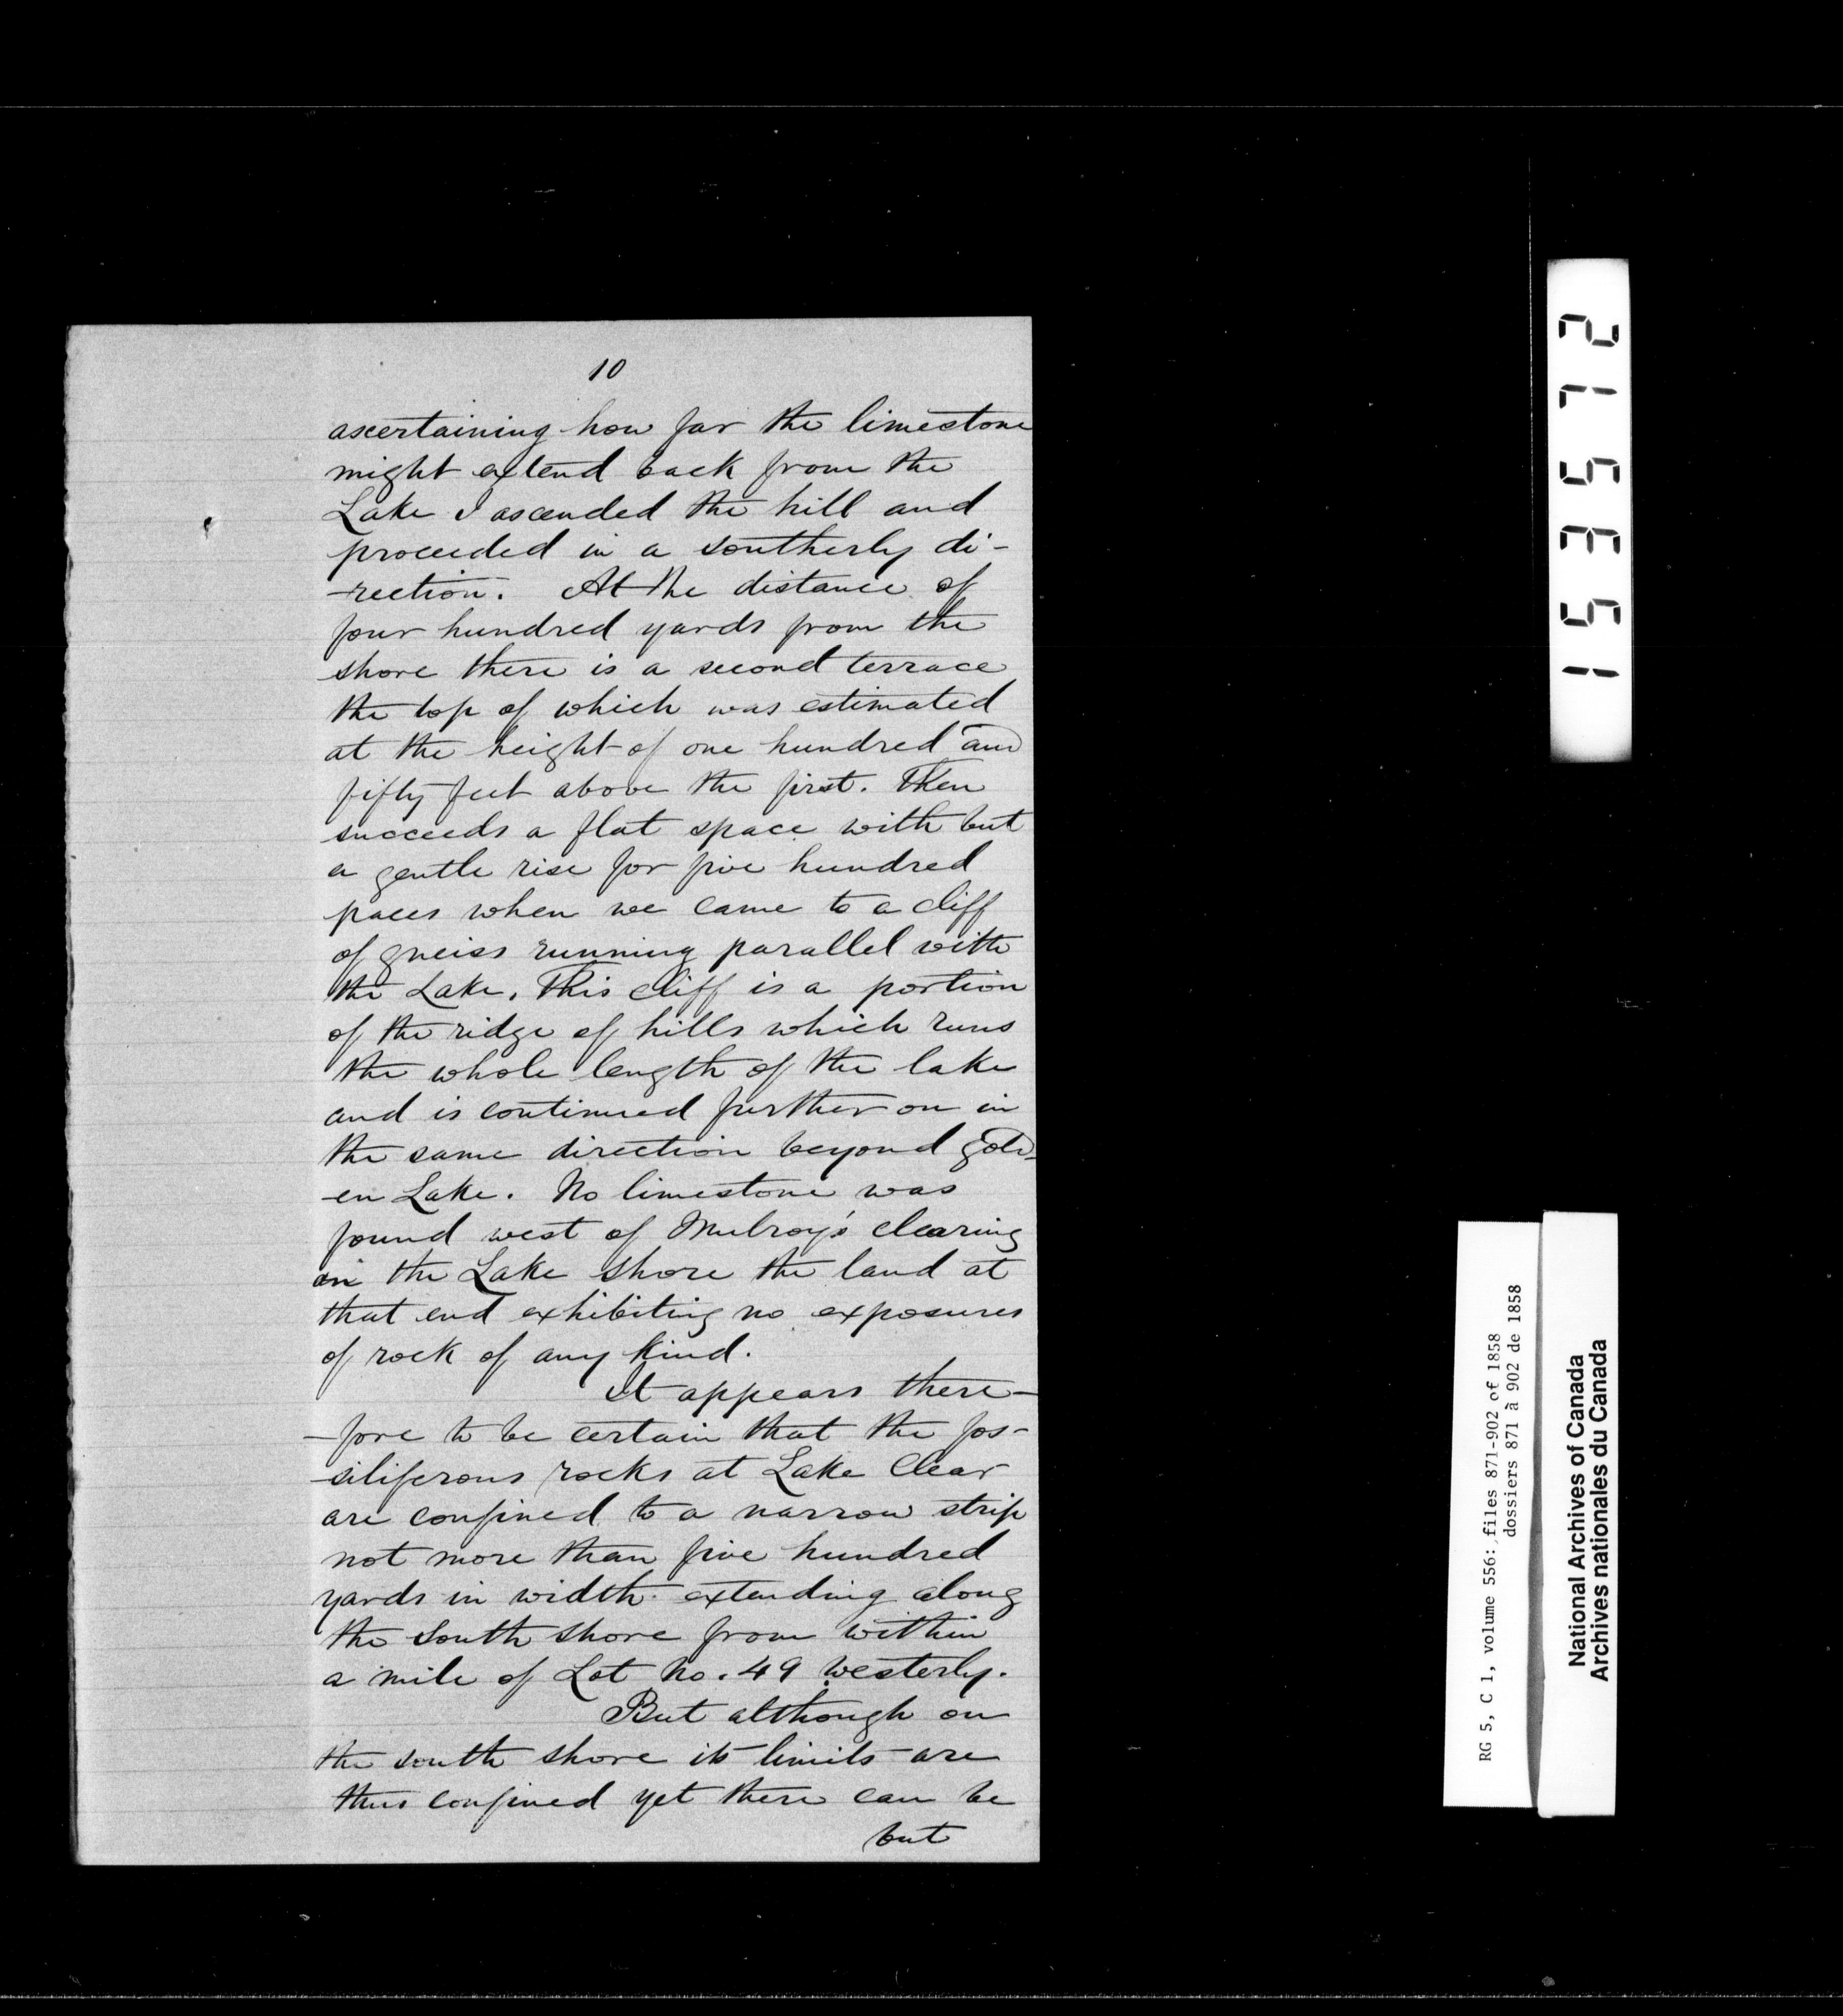 10
ascertaining how far the limestone
might extend back from the
Lake I ascended the hill and
proceeded in a southerly di-
-rection. At the distance of
four hundred yards from the
shore there is a second terrace
the top of which was estimated
at the height of one hundred and
fifty feet above the first. Then
succeeds a flat space with but
a gentle rise for five hundred
paces when we came to a cliff
of gneiss running parallel with
the Lake. This cliff is a portion
of the ridge of hills which runs
the whole length of the lake
and is continued further on in
the same direction beyond Gold-
-en Lake. No limestone was
found west of Mulroy's clearing
on the Lake shore the land at
that end exhibiting no exposures
of rock of any kind.
It appears there-
-fore to be certain that the fos-
-siliferous rocks at Lake Clear
are confined to a narrow strip
not more than five hundred
yards in width extending along
the South shore from within
a mile of Lot No. 49 westerly.
But although on
the south shore its limits are
thus confined yet there can be
but
153572
RG 5, C 1, volume 556: files 871-902 of 1858
dossiers 871 à 902 de 1858
National Archives of Canada
Archives nationales du Canada